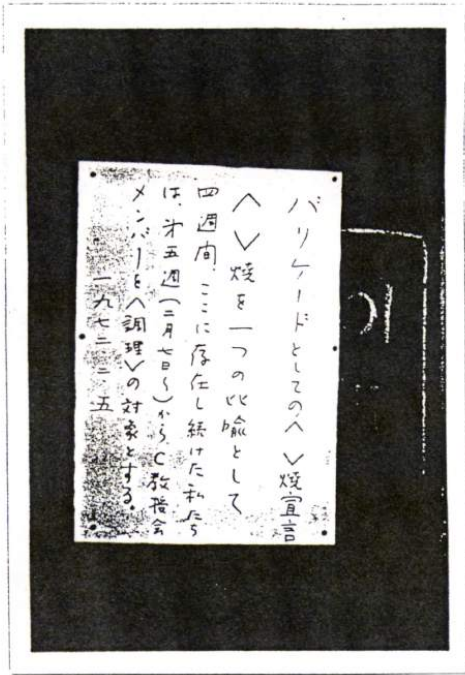 バリケードとしての〈 〉焼宣言
〈 〉焼を一つの比喩として
四週間、ここに存在し続けた私たち
は、第五週(二月七日〜)から、C教授会
メンバーを〈調理〉の対象とする。
一九七二・二・五